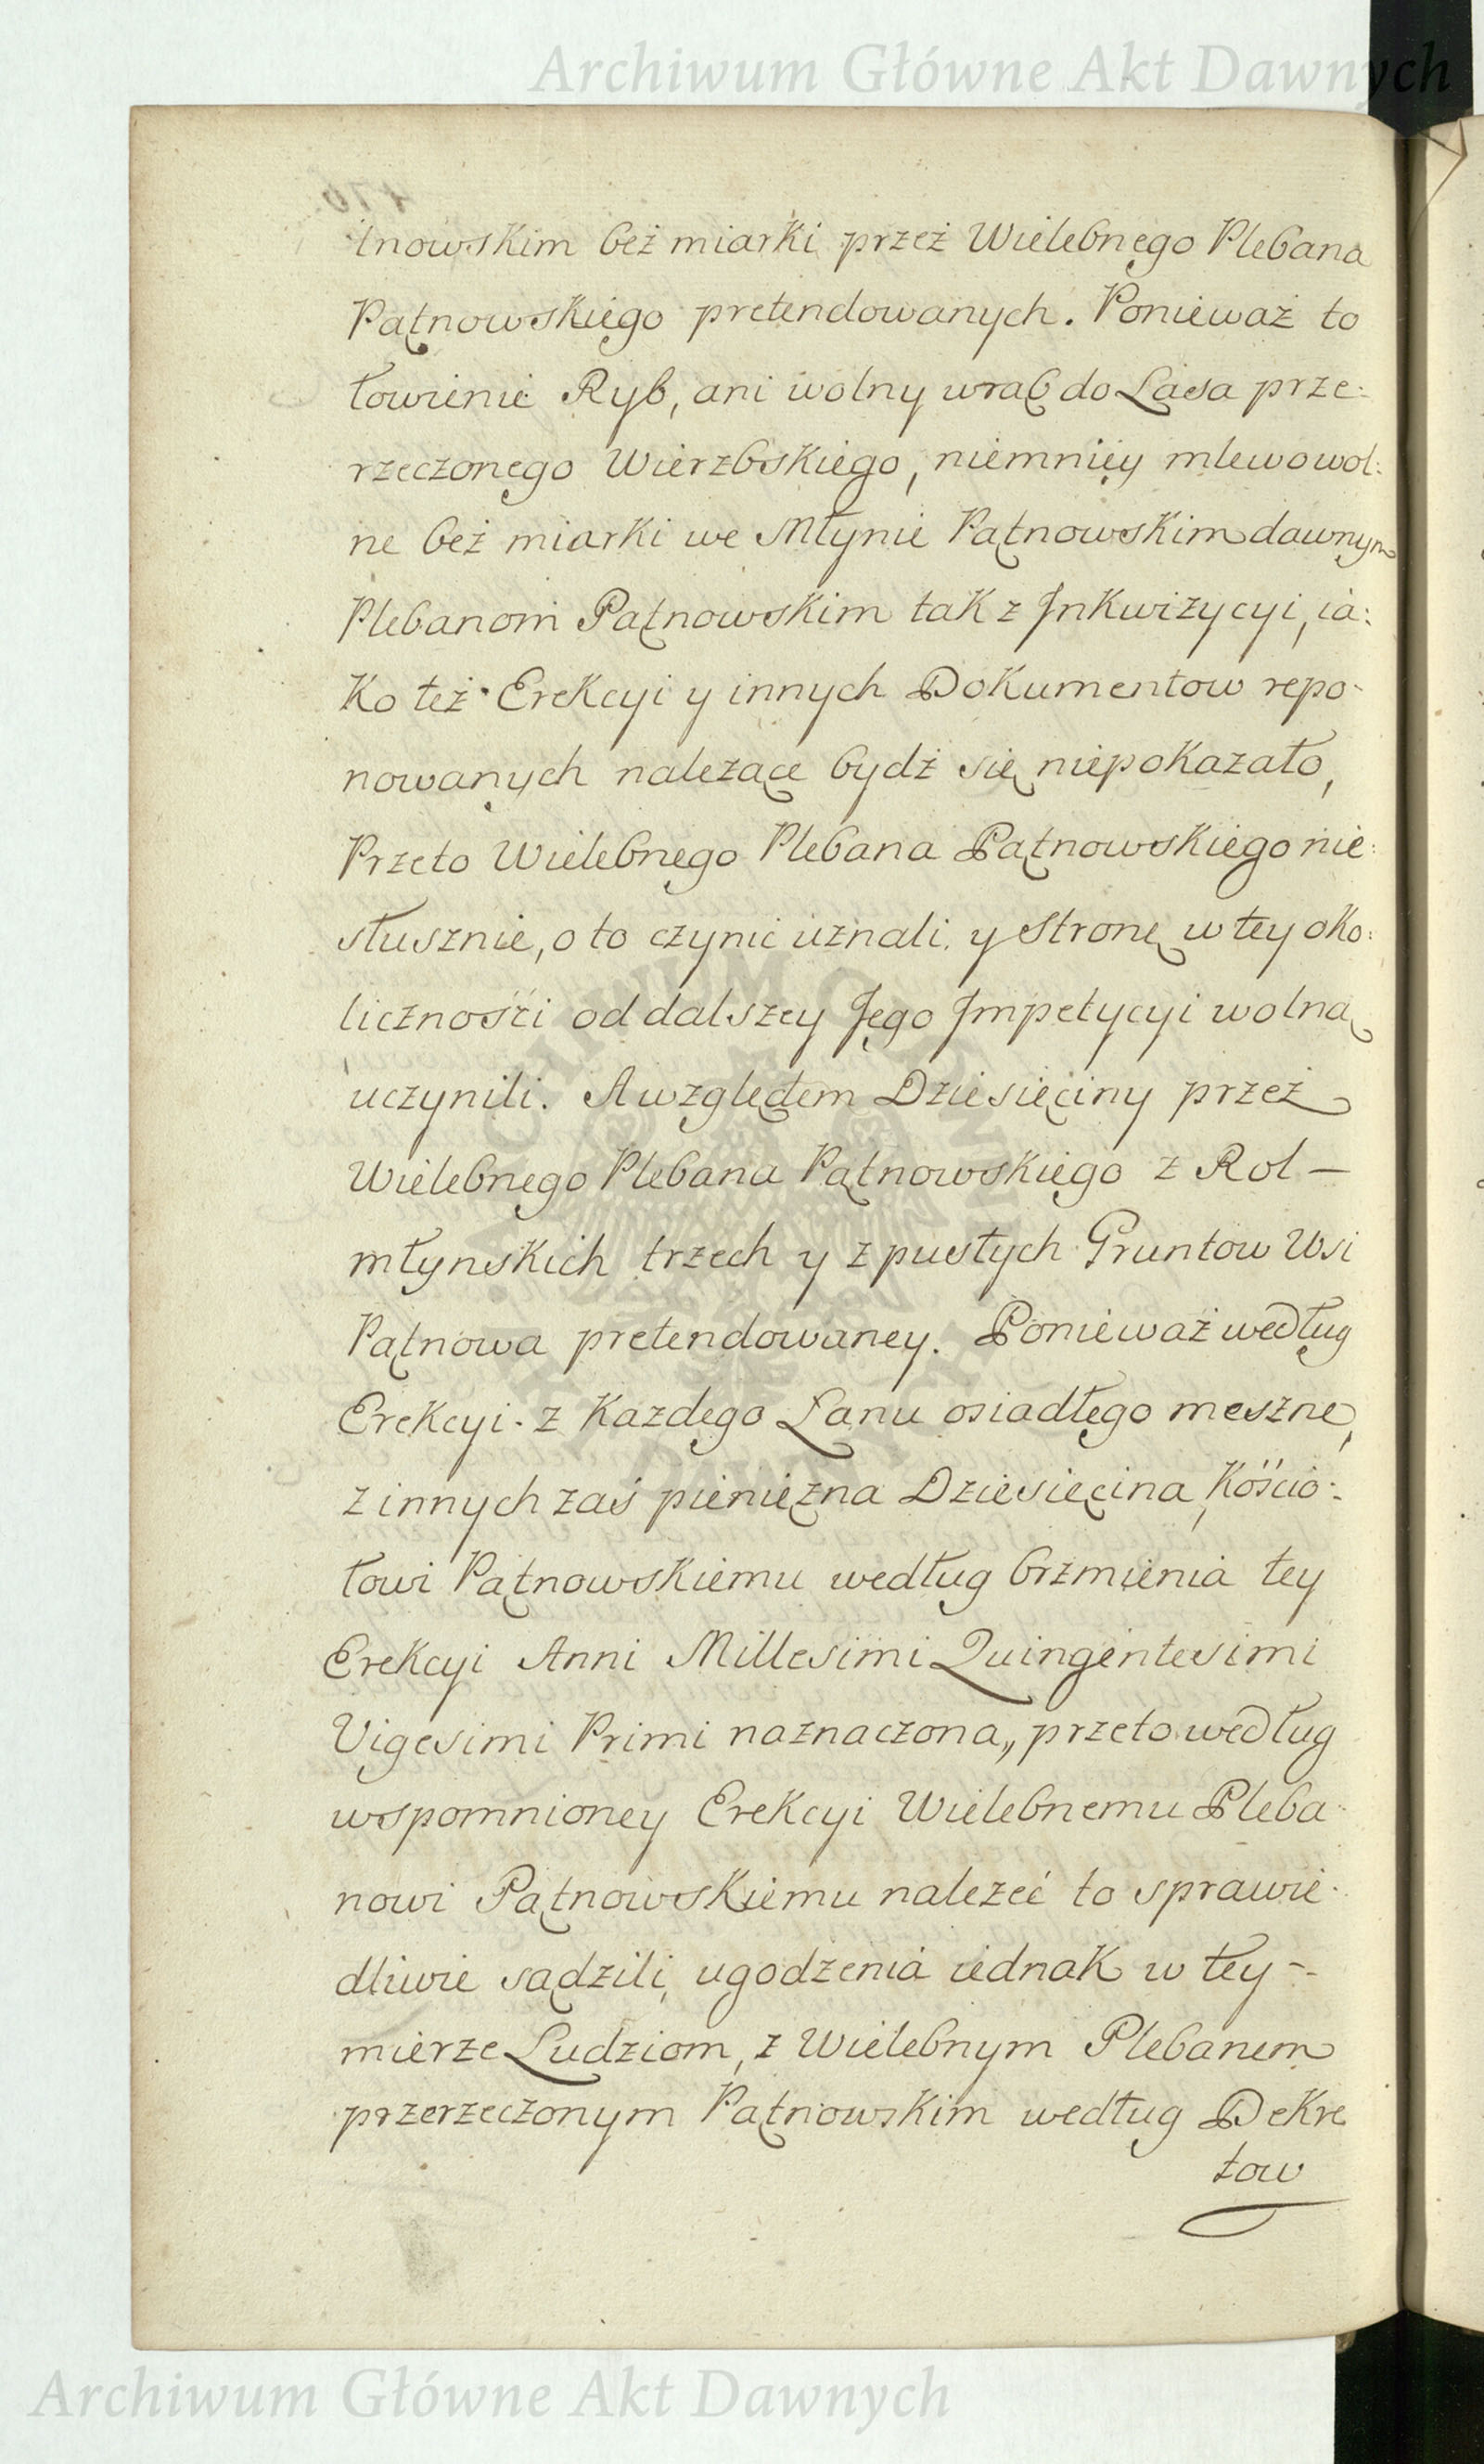 Archiwum Główne Akt Dawnych
tnowskim beż miarki przeż Wielebnego Plebana
Pątnowskiego pretendowanych. Ponieważ to
łowienie Ryb, ani wolny wrąb do Lasa prze:
rzeczonego Wierzbskiego, niemnięy mlewo wol:
ne beż miarki we Młynie Pątnowskim dawnym
Plebanom Pątnowskim tak z Jnkwizycyi, ia:
ko też Erekcyi y innych Dokumentow repo-
nowanych należące bydź się niepokazało,
Przeto Wielebnego Plebana Pątnowskiego nie:
słusznie, o to czynić uznali y Stronę w tey oko:
liczności od dalszey Jego Jmpetycyi wolną
uczynili. A względem Dziesięciny przeż
Wielebnego Plebana Pątnowskiego z Rol —
młynskich trzech y z pustych Gruntow Wsi
Pątnowa pretendowaney. Ponieważ według
Erekcyi z Każdego Łanu osiadłego meszne,
z innych zaś pieniężna Dziesięcina, Kościo:
łowi Pątnowskiemu według brzmienia tey
Erekcyi Anni Millesimi Quingentesimi
Vigesimi Primi naznaczona, przeto według
wspomnioney Erekcyi Wielebnemu Pleba-
nowi Pątnowskiemu należeć to sprawie-
dliwie sądzili, ugodzenia iednak w tey -
mierze Ludziom, z Wielebnym Plebanem
przerzeczonym Pątnowskim według Dekre
tow
Archiwum Główne Akt Dawnych